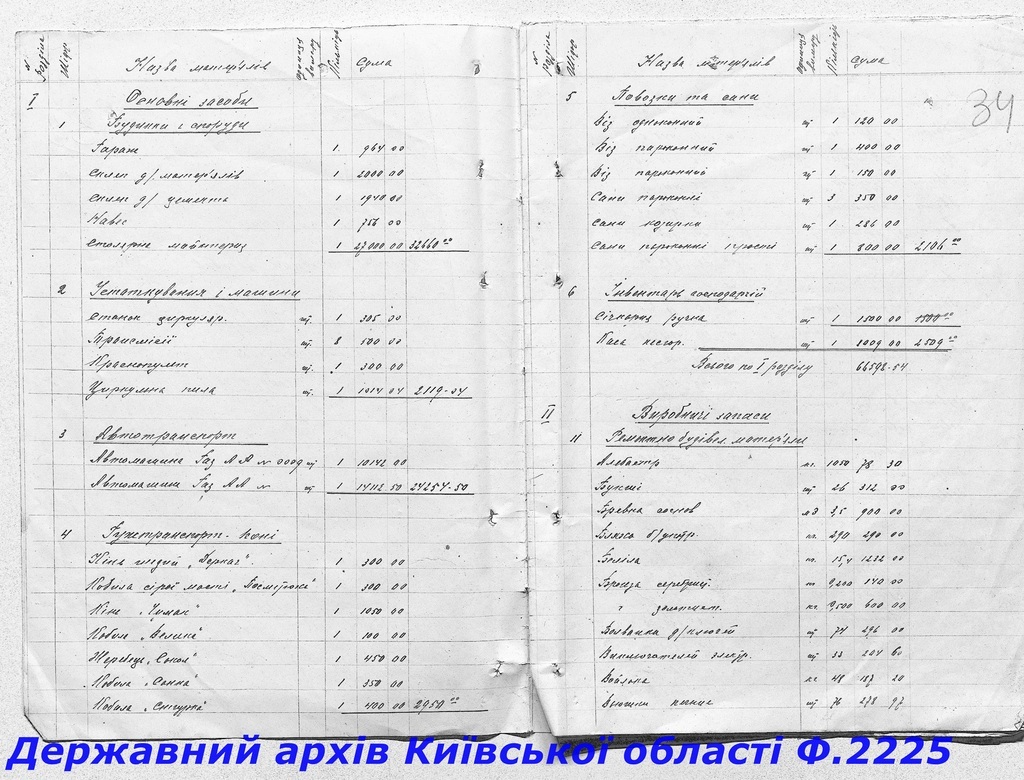 № Розділа Шифр Назва матерьялів одиниця виміру Кількість сума
I Основні засоби
1 Будинки і споруди
Гараж 1 964 00
Склад д/матерьялів 1 2000 00
Склад д/ цемента 1 1940 00
Навес 1 756 00
Столярна майстерня 1 27000 00 32660 00
2 Устаткування і машини
Станок циркуляр. шт. 1 305 00
Трансмісії шт. 8 500 00
Краскопульт шт. 1 300 00
Циркульна пила шт. 1 1014 04 2119-04
3 Автотранспорт
Автомашина Газ АА № 0009 шт 1 10142 00
Автомашина Газ АА № шт 1 14112 50 24254-50
4 Гужтранспорт - Коні
Кінь гнідий 1 300 00
Кобила сірої масті 1 300 00
Кінь "Чумак" 1 1050 00
Кобила 1 100 00
Жеребець "Сокол" 1 450 00
Кобила 1 350 00
Кобила 1 400 00 2950 00
34
№ Розділа Шифр Назва матерьялів одиниця виміру Кількість сума
5 Повозки та сани
Віз одноконний шт 1 120 00
Віз пароконний шт 1 400 00
Віз пароконний шт 1 150 00
Сани пароконні шт 3 350 00
Сани козирки шт 1 286 00
Сани пароконні прості шт 1 800 00 2106 00
6 Інвентарь господарчій
Січкарня ручна шт 1 1500 00 1500 00
Каса несгор. шт 1 1009 00 2509 00
Всього по I розділу 66598-54
II Виробничі запаси
11 Ремонтно будівел. матерьяли
Алебастр кг. 1050 78 30
Букші шт 26 312 00
Бревна соснов м3 3,5 900 00
кг. 290 290 00
Беліла кг. 15,4 1232 00
Бронза серебриста 140 00
" золотист. кг 600 00
шт 74 296 00
Виключателей электр. шт 33 204 60
Войлока кг 48 187 20
Вюшки печние шт 76 278 97
Державний архів Київської області Ф.2225